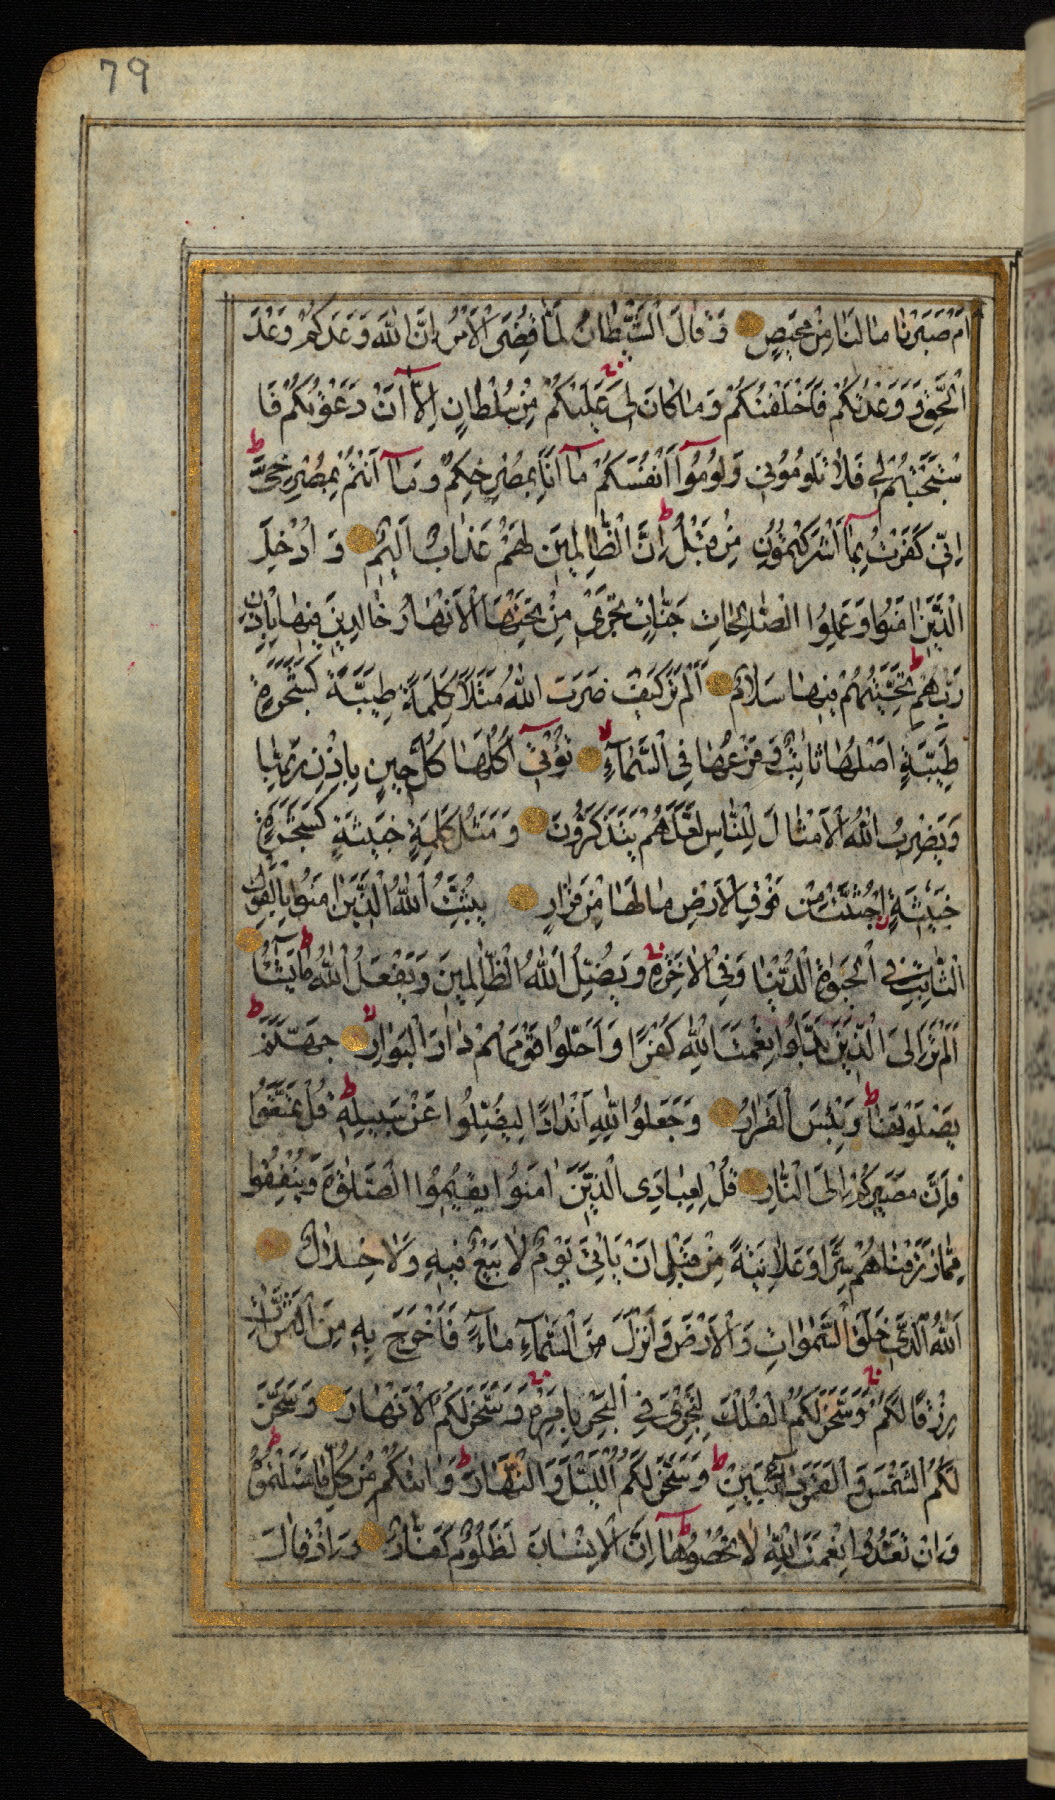 79
اَمْ صَبَرْنا ما لَنا مِنْ مَحيصٍ وَ قالَ الشَّيْطانُ لَمّا قُضِىَ الْاَمْرُ اِنَّ اللهَ وَعَدَكُمْ وَعْدَ
الْحَقِّ وَ وَعَدْتُكُمْ فَاَخْلَفْتُكُمْ وَ ما كانَ لِىَ عَلَيْكُمْ مِنْ سُلْطانٍ اِلّآ اَنْ دَعَوْتُكُمْ فَا
سْتَجَبْتُمْ لى فَلا تَلُومُونى وَ لُومُوآ اَنْفُسَكُمْ مآ اَنَا بِمُصْرِخِكُمْ وَ مآ اَنْتُمْ بِمُصْرِخِىَّ
اِنّى كَفَرْتُ بِمآ اَشْرَكْتُمُونِ مِنْ قَبْلُ اِنَّ الظّالِمينَ لَهُمْ عَذابٌ اَليمٌ وَ اُدْخِلَ
الَّذينَ امَنُوا وَ عَمِلُوا الصّالِحاتِ جَنّاتٍ تَجْرى مِنْ تَحْتِهَا الْاَنْهارُ خالِدينَ فيها بِاِذْنِ
رَبِّهِمْ تَحِيَّتُهُمْ فيها سَلامٌ اَلَمْ تَرَ كَيْفَ ضَرَبَ اللهُ مَثَلًا كَلِمَةً طَيِّبَةً كَشَجَرَةٍ
طَيِّبَةٍ اَصْلُها ثابِتٌ وَ فَرْعُها فِى السَّمآءِ تُؤْتى اُكُلَها كُلَّ حينٍ بِاِذْنِ رَبِّها
وَ يَضْرِبُ اللهُ الْاَمْثالَ لِلنّاسِ لَعَلَّهُمْ يَتَذَكَّرُونَ وَ مَثَلُ كَلِمَةٍ خَبيثَةٍ كَشَجَرَةٍ
خَبيثَةٍ اجْتُثَّتْ مِنْ فَوْقِ الْاَرْضِ ما لَها مِنْ قَرارٍ يُثَبِّتُ اللهُ الَّذينَ امَنُوا بِالْقَوْلِ
الثّابِتِ فِى الْحَيوةِ الدُّنْيا وَ فِى الْاخِرَةِ وَ يُضِلُّ اللهُ الظّالِمينَ وَ يَفْعَلُ اللهُ ما يَشآءُ
اَلَمْ تَرَ اِلَى الَّذينَ بَدَّلُوا نِعْمَتَ اللهِ كُفْرًا وَ اَحَلُّوا قَوْمَهُمْ دارَ الْبَوارِ جَهَنَّمَ
يَصْلَوْنَها وَ بِئْسَ الْقَرارُ وَ جَعَلُوا لِلّهِ اَنْدادًا لِيُضِلُّوا عَنْ سَبيلِهِ قُلْ تَمَتَّعُوا
فَاِنَّ مَصيرَكُمْ اِلَى النّارِ قُلْ لِعِبادِىَ الَّذينَ امَنُوا يُقيمُوا الصَّلوةَ وَ يُنْفِقُوا
مِمّا رَزَقْناهُمْ سِرًّا وَ عَلانِيَةً مِنْ قَبْلِ اَنْ يَاْتِىَ يَوْمٌ لا بَيْعٌ فيهِ وَ لا خِلالٌ
اَللهُ الَّذى خَلَقَ السَّمواتِ وَ الْاَرْضَ وَ اَنْزَلَ مِنَ السَّمآءِ مآءً فَاَخْرَجَ بِهِ مِنَ الثَّمَراتِ
رِزْقًا لَكُمْ وَ سَخَّرَ لَكُمُ الْفُلْكَ لِتَجْرِىَ فِى الْبَحْرِ بِاَمْرِهِ وَ سَخَّرَ لَكُمُ الْاَنْهارَ وَ سَخَّرَ
لَكُمُ الشَّمْسَ وَ الْقَمَرَ دآئِبَيْنِ وَ سَخَّرَ لَكُمُ اللَّيْلَ وَ النَّهارَ وَ اتيكُمْ مِنْ كُلِّ ما سَاَلْتُمُوهُ
وَ اِنْ تَعُدُّوا نِعْمَتَ اللهِ لا تُحْصُوهآ اِنَّ الْاِنْسانَ لَظَلُومٌ كَفّارٌ وَ اِذْ قالَ